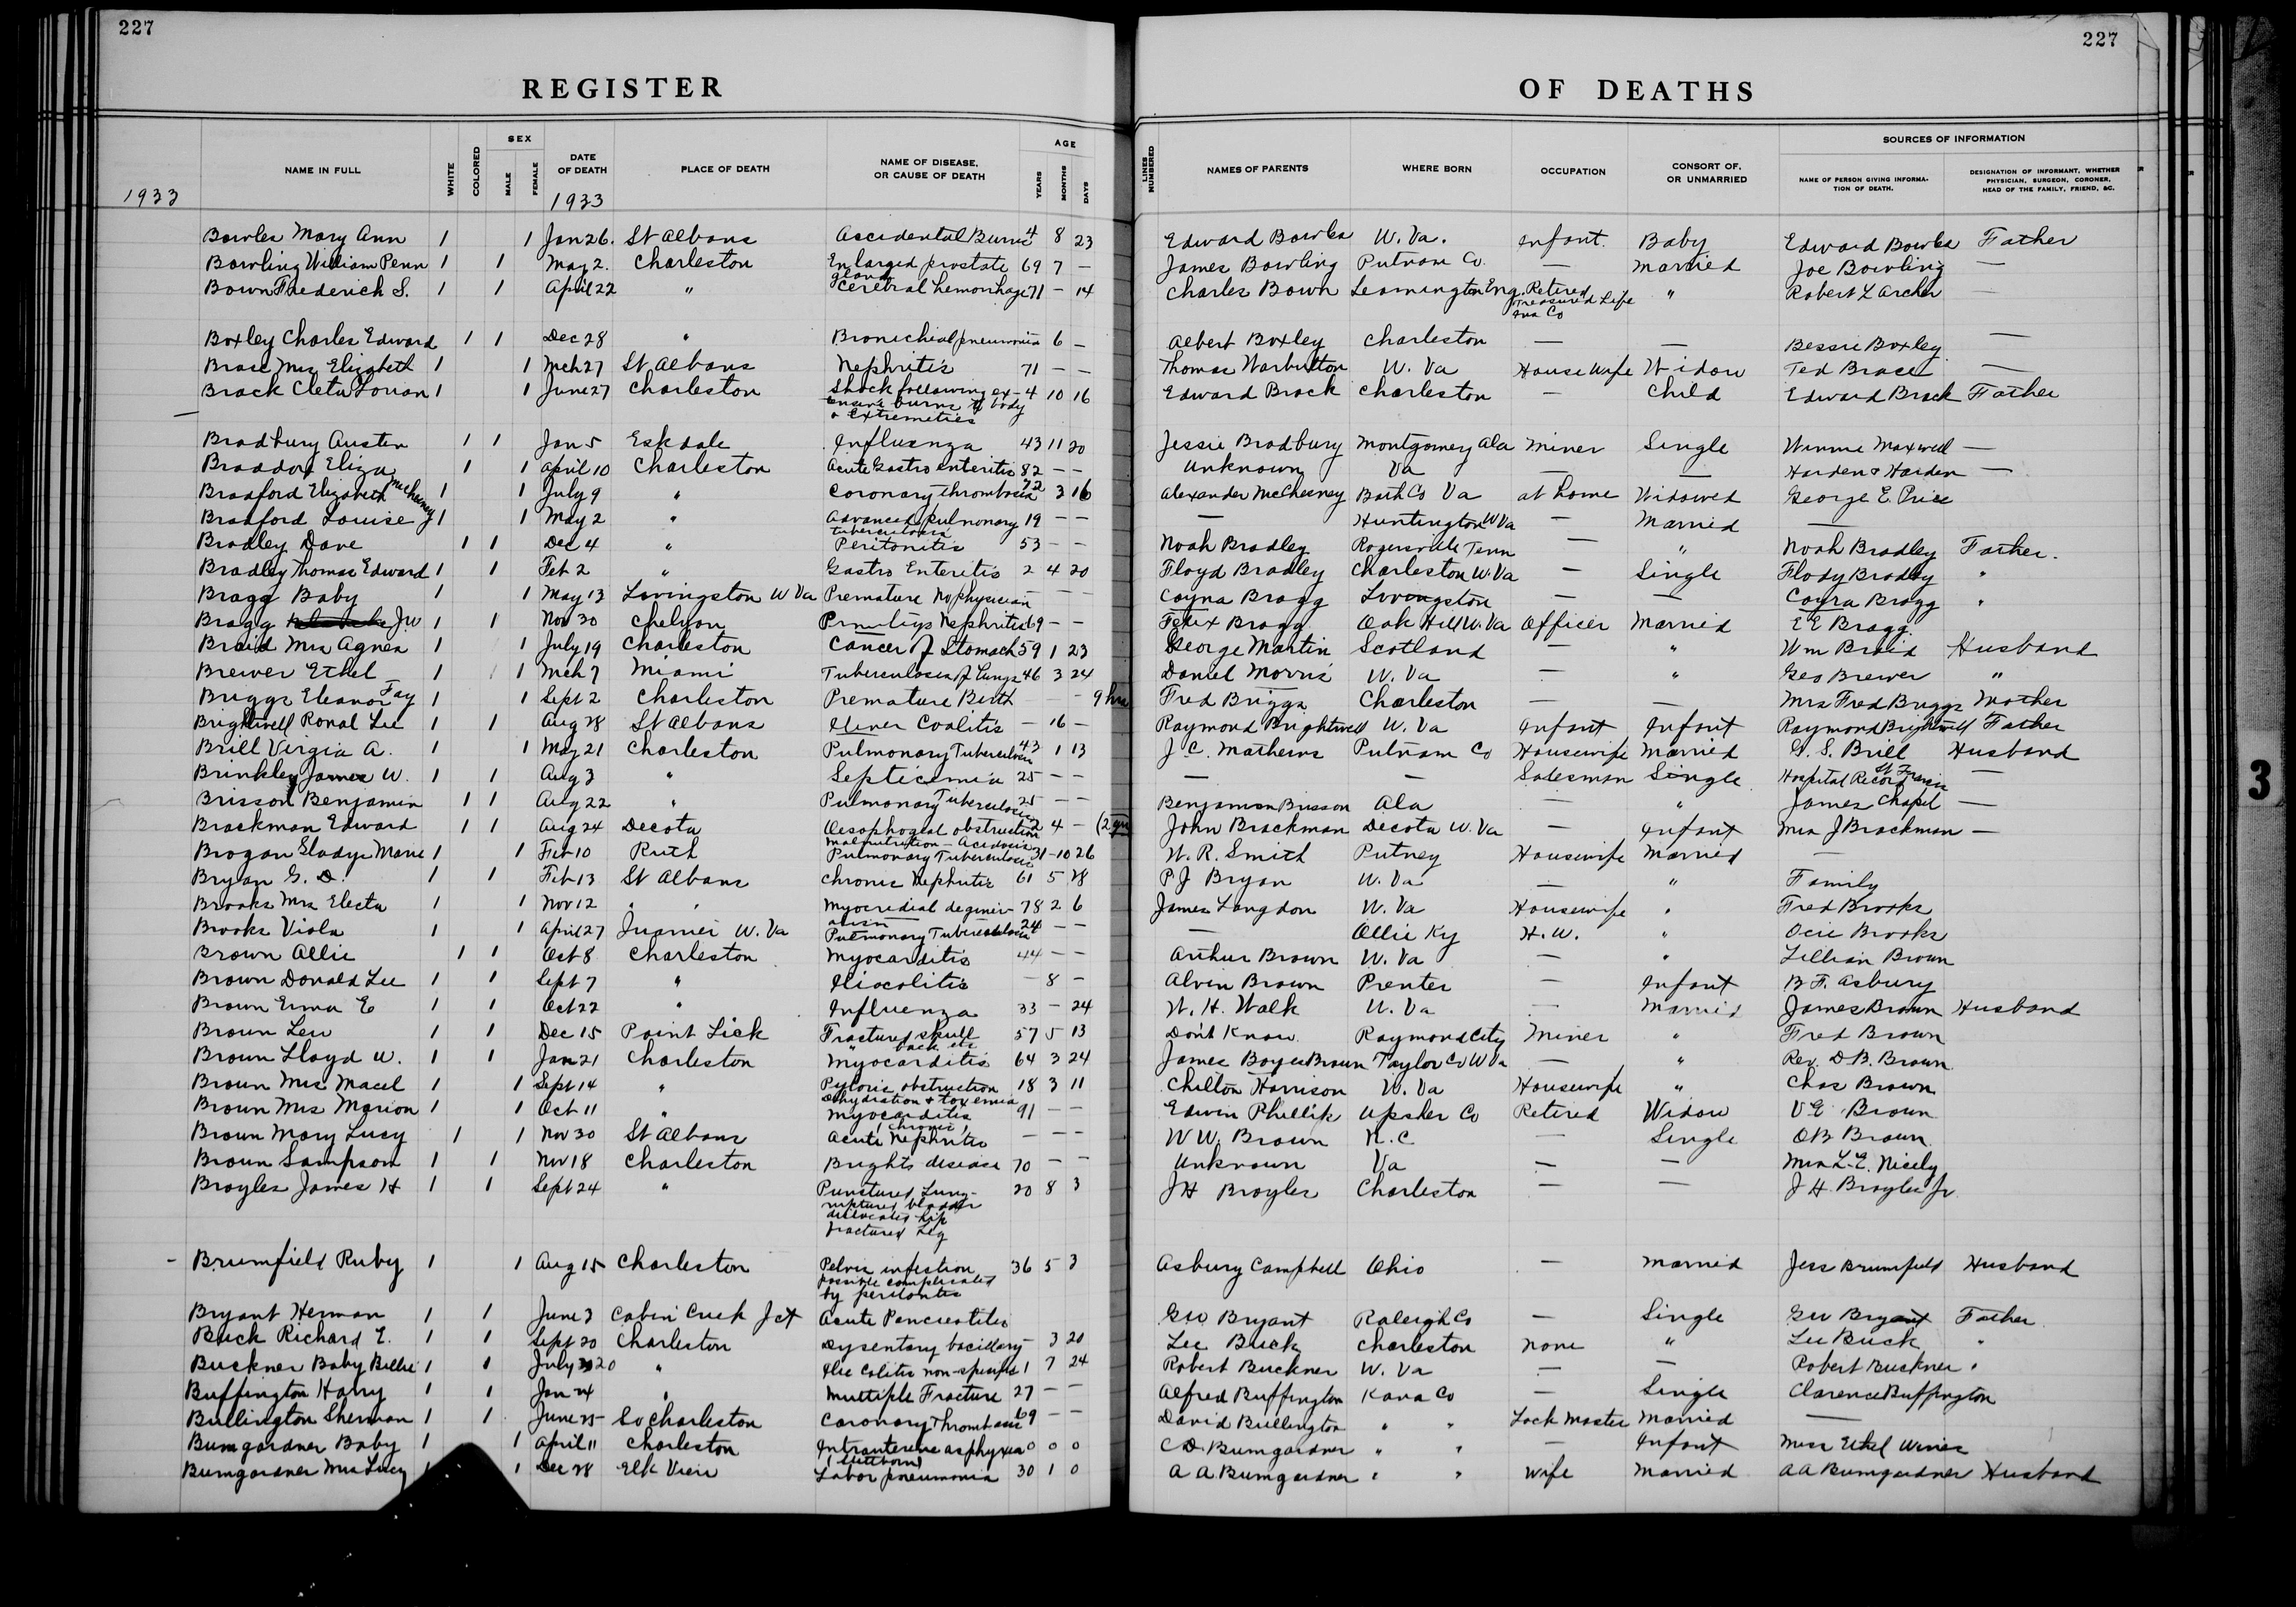 227
227
REGISTER OF DEATHS
NAME IN FULL WHITE COLORED SEX MALE FEMALE DATE OF DEATH PLACE OF DEATH NAME OF DISEASE, OR CAUSE OF DEATH AGE YEARS MONTHS DAYS LINES NUMBERED NAMES OF PARENTS WHERE BORN OCCUPATION CONSORT OF, OR UNMARRIED SOURCES OF INFORMATION NAME OF PERSON GIVING INFORMATION OF DEATH. DESIGNATION OF INFORMANT, WHETHER PHYSICIAN, SURGEON, CORONER, HEAD OF THE FAMILY, FRIEND, &C.
1933 1933
Bowles Mary Ann 1 1 Jan 26. St Albans Accidental Burns 4 8 23 Edward Bowles W. Va. Infant. Baby Edward Bowles Father
Bowling William Penn 1 1 May 2. Charleston Enlarged prostate gland 69 7 — James Bowling Putnam Co. — Married Joe Bowling —
Bown Frederick S. 1 1 April 22 " Cerebral hemorrhage 71 — 14 Charles Bown Leamington Eng. Retired Treasured Life Ins Co " Robert L Archer —
Boxley Charles Edward 1 1 Dec 28 " Bronichial pneumonia — 6 — Albert Boxley Charleston — — Bessie Boxley —
Brace Mrs Elizabeth 1 1 Mch 27 St Albans Nephritis 71 — — Thomas Warbutton W. Va House Wife Widow Ted Brace —
Brack Cleta Lorian 1 1 June 27 Charleston Shock following ex- 4 10 16 Edward Brack Charleston — Child Edward Brack Father
tensive burns of body
& extremities
Bradbury Austin 1 1 Jan 5 Eskdale Influenza 43 11 20 Jessie Bradbury Montgomery Ala Miner Single Winnie Maxwell —
Braddox Eliza 1 1 April 10 Charleston Acute Gastro enteritis 82 — — Unknown Va — — Harden & Harden —
Bradford Elizabeth McChesney 1 1 July 9 " Coronary thrombosis 72 3 16 Alexander McChesney Bath Co Va at home Widowed George E. Price
Bradford Louise J 1 1 May 2 " Advanced pulmonary tuberculosis 19 — — — Huntington W Va — Married —
Bradley Dave 1 1 Dec 4 " Peritonitis 53 — — Noah Bradley Rogersville Tenn — " Noah Bradley Father.
Bradley Thomas Edward 1 1 Feb 2 " Gastro Enteritis 2 4 20 Floyd Bradley Charleston W. Va — Single Flody Bradly "
Bragg Baby 1 1 May 13 Livingston W Va Premature No physician — — — Coyna Bragg Livingston — — Coyra Bragg "
Bragg J W 1 1 Nov 30 Chelyan Nephritis 69 — — Felix Bragg Oak Hill W. Va Officer Married E E Bragg.
Braid Mrs Agnes 1 1 July 19 Charleston Cancer of Stomach 59 1 23 George Martin Scotland — " Wm Braid Husband
Brewer Ethel 1 1 Mch 7 Miami Tuberculosis of Lungs 46 3 24 Daniel Morris W. Va — " Geo Brewer "
Briggs Eleanor Fay 1 1 Sept 2 Charleston Premature Birth — — 9 hrs Fred Briggs Charleston — — Mrs Fred Briggs Mother
Brightwell Ronal Lee 1 1 Aug 28 St Albans Coalitis — 16 — Raymond Brightwell W. Va Infant Infant Raymond Brightwell Father
Brill Virgia A. 1 1 May 21 Charleston Pulmonary Tuberculosis 43 1 13 J. C. Mathews Putnam Co Housewife Married G. S. Brill Husband
Brinkley James W. 1 1 Aug 3 " Septicemia 25 — — — — Salesman Single Hospital Record St Francis —
Brisson Benjamin 1 1 Aug 22 " Pulmonary Tuberculosis 25 — — Benjamin Brisson Ala — " James Chapel —
Brockman Edward 1 1 Aug 24 Decota Oesophogeal obstruction 2 4 — (2 yrs John Brockman Decota W. Va — Infant Mrs J Brockman —
Malnutrition – Acidosis
Brogan Gladys Marie 1 1 Feb 10 Ruth Pulmonary Tuberculosis 31 – 10 26 W. R. Smith Putney Housewife Married —
Bryan G. D. 1 1 Feb 13 St Albans Chronic Nephritis 61 5 28 P J Bryan W. Va — " Family
Brooks Mrs Electa 1 1 Nov 12 " " Myocredial degener- 78 2 6 James Langdon W. Va Housewife " Fred Brooks
Brooks Viola 1 1 April 27 W. Va Pulmonary Tuberculosis 24 — — — Ollie Ky H. W. " Ocie Brooks
Brown Allie 1 1 Oct 8 Charleston Myocarditis 44 — — Arthur Brown W. Va — " Lillian Brown
Brown Donald Lee 1 1 Sept 7 " Iliocolitis — 8 — Alvin Brown Prenter — Infant B. F. Asbury
Brown Erma E 1 1 Oct 22 " Influenza 33 — 24 W. H. Walk W. Va — Married James Brown Husband
Brown Leu 1 1 Dec 15 Point Lick Fractured skull 57 5 13 Don't Know Raymond City Miner " Fred Brown
" back etc
Brown Lloyd W. 1 1 Jan 21 Charleston Myocarditis 64 3 24 James Boyce Brown Taylor Co W Va — " Rev. D B. Brown
Brown Mrs Macel 1 1 Sept 14 " Pyloric obstruction 18 3 11 Chilton Harrison W. Va Housewife " Chas Brown
Dehydration & toxemia
Brown Mrs Marion 1 1 Oct 11 " Myocarditis 91 — — Edwin Phillik Upsher Co Retired Widow V E Brown
(Chronic)
Brown Mary Lucy 1 1 Nov 30 St Albans Acute Nephritis — — — W W. Brown N. C — Single O B Brown.
Brown Sampson 1 1 Nov 18 Charleston Brights disease 70 — — Unknown Va — — Mrs L. E. Nicely
Broyles James H 1 1 Sept 24 " Punctured Lung- 20 8 3 J H Broyles Charleston — — J H. Broyles Jr
ruptured bladder
dislocated hip
fractured Leg
Brumfield Ruby 1 1 Aug 15 Charleston Pelvic infection 36 5 3 Asbury Campbell Ohio — Married Jess Brumfield Husband
possible complicated
by peritonitis
Bryant Herman 1 1 June 3 Cabin Creek Jct Acute Pancreatitis Geo Bryant Raleigh Co — Single Geo Bryant Father
Buck Richard E. 1 1 Sept 20 Charleston Dysentary bacillary – 3 20 Lee Buck Charleston none " Lee Buck "
Buckner Baby Billie 1 1 July 20 " Ilio Colitis non-specific 1 7 24 Robert Buckner W. Va — — Robert Buckner "
Buffington Harry 1 1 Jan 24 " Multiple Fracture 27 — — Alfred Buffington Kana Co — Single Clarence Buffington
Bullington Sherman 1 1 June 25 So Charleston Coronary Thrombosis 69 — — David Bullington " " Lock Master Married —
Bumgardner Baby 1 1 April 11 Charleston Intrauterine asphyxia 0 0 0 C D. Bumgardner " " — Infant Miss Ethel
(Stillborn)
Bumgardner Mrs Lucy 1 1 Dec 28 Elk View Labor pneumonia 30 1 0 A A Bumgardner " " Wife Married A A Bumgardner Husband
3